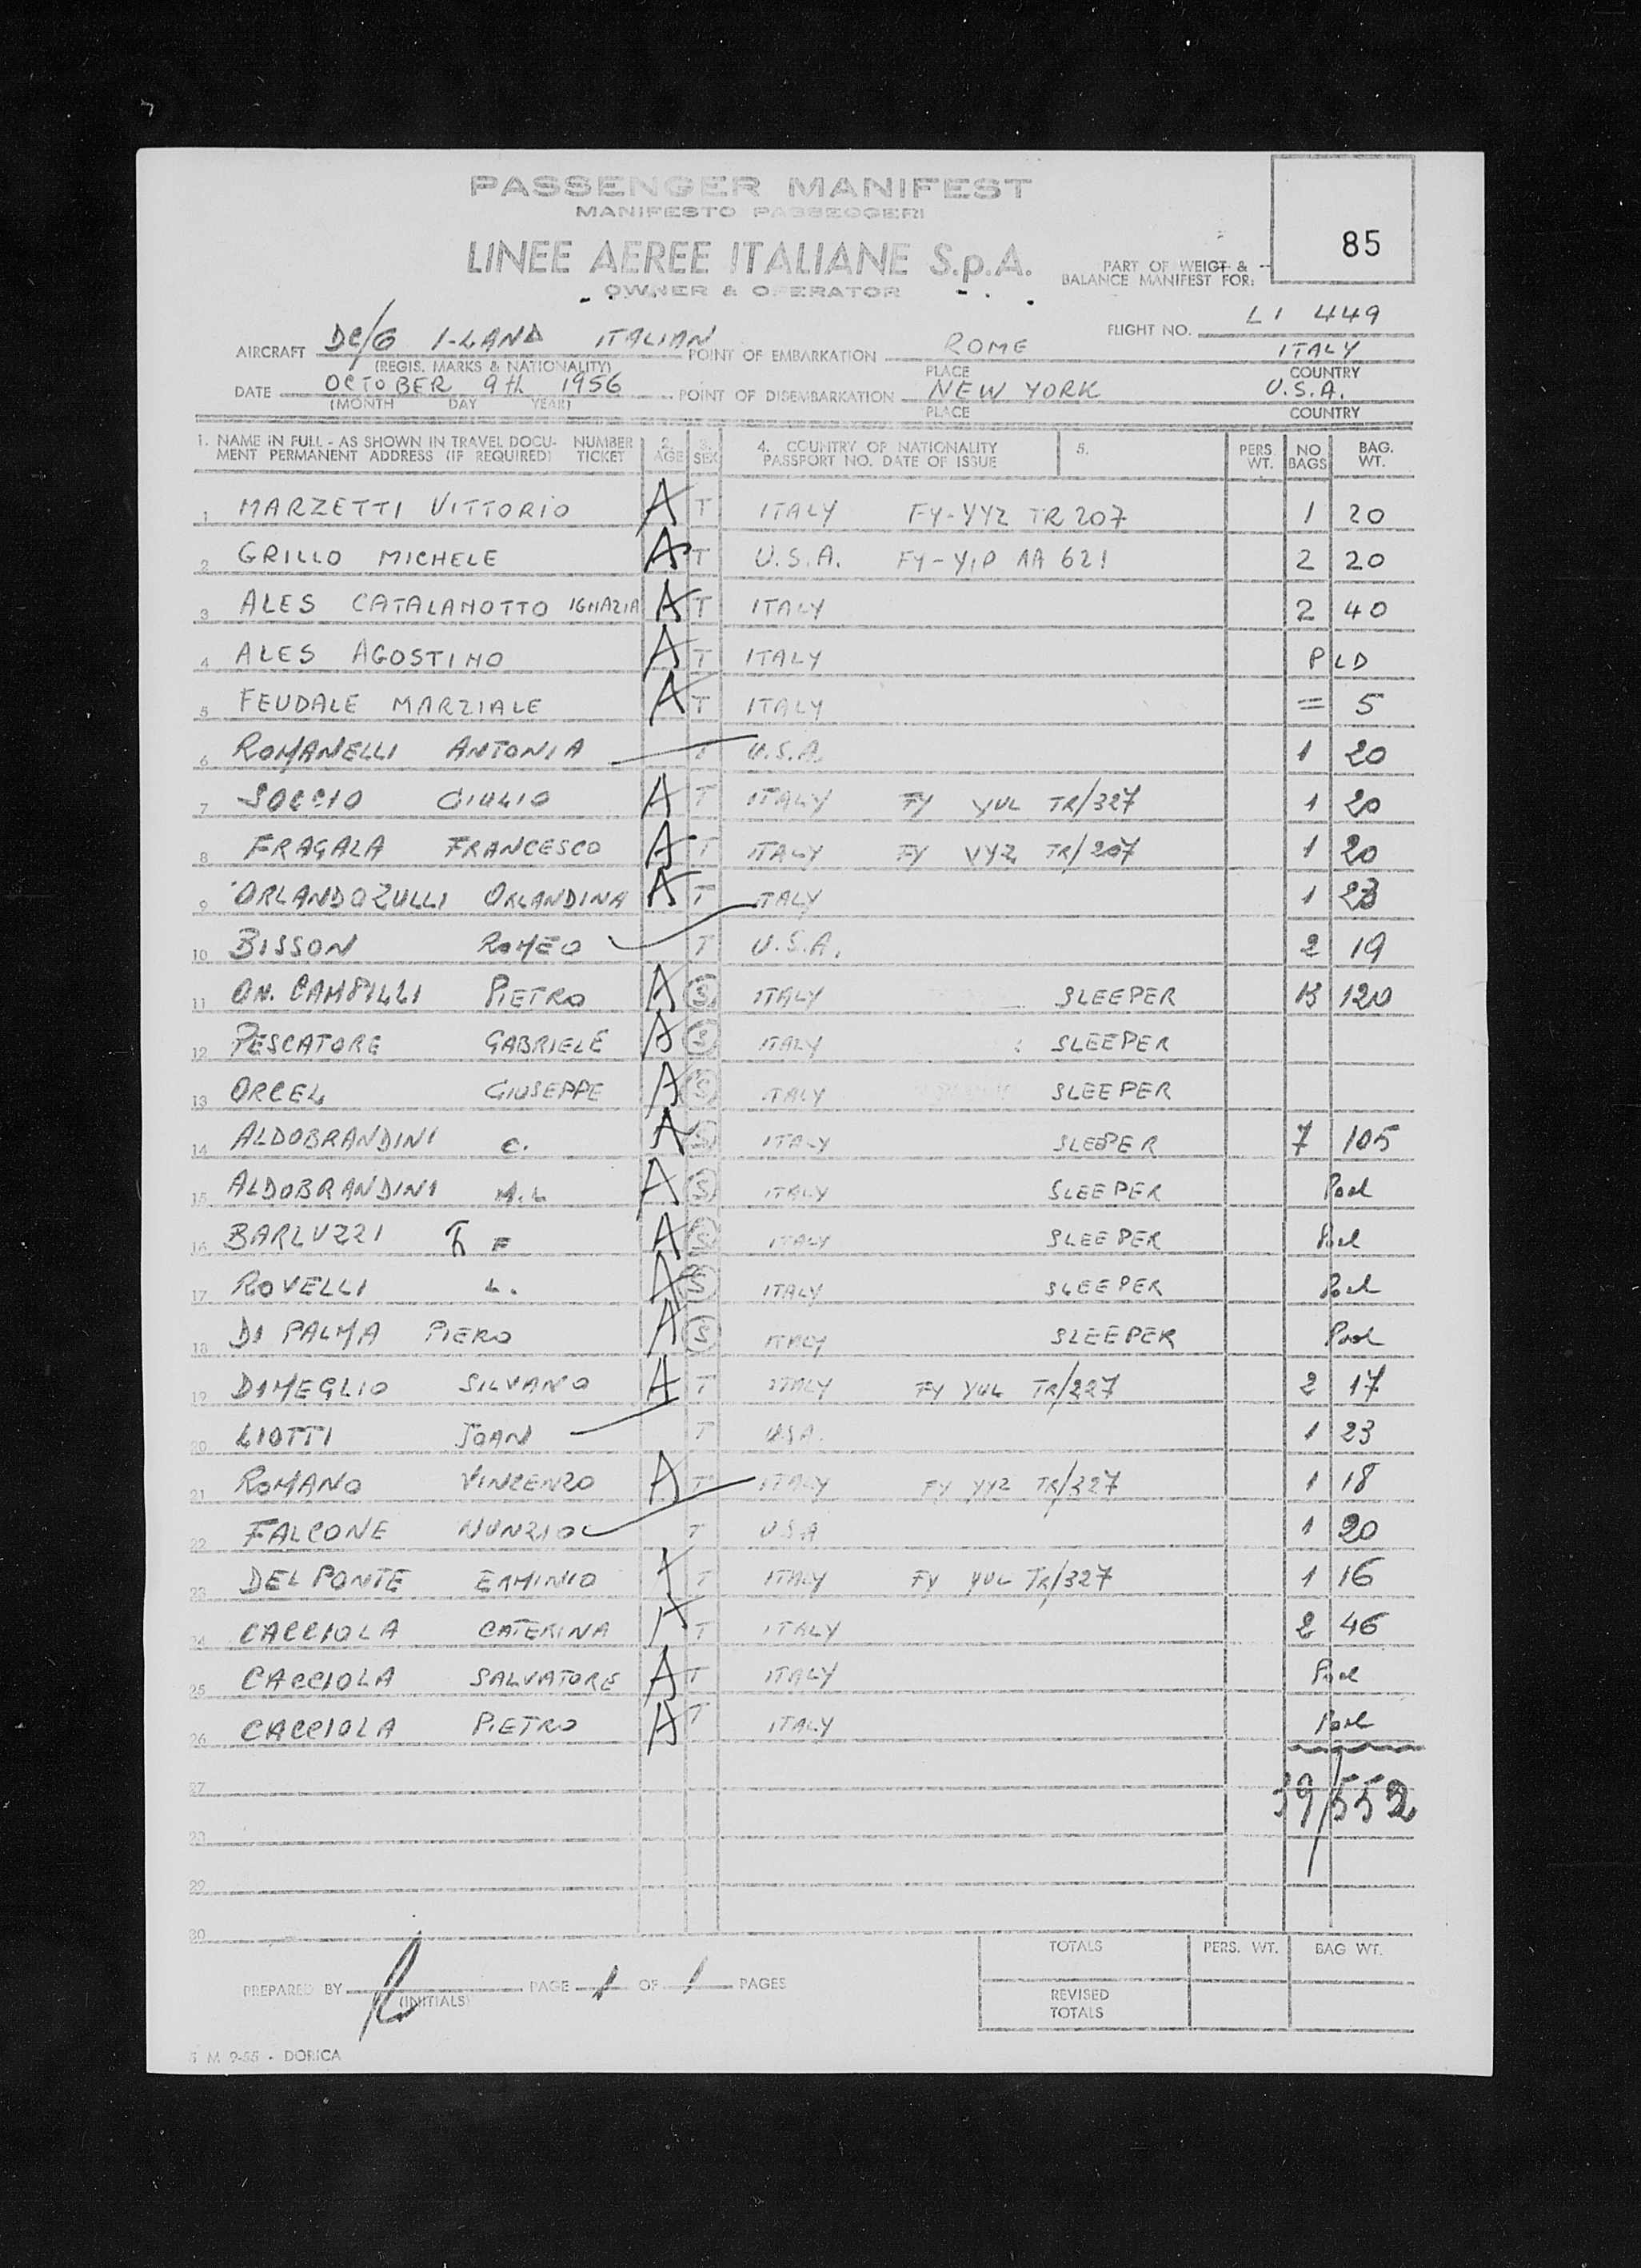 PASSENGER MANIFEST
MANIFESTO PASSEGGERI
LINEE AEREE ITALIANE S.p.A.
OWNER & OPERATOR
85
PART OF WEIGT &
BALANCE MANIFEST FOR:
FLIGHT NO. LI 449
AIRCRAFT DC/6 I-LAND ITALIAN POINT OF EMBARKATION ROME ITALY
(REGIS. MARKS & NATIONALITY) PLACE COUNTRY
DATE OCTOBER 9th 1956 POINT OF DISEMBARKATION NEW YORK U.S.A.
(MONTH DAY YEAR) PLACE COUNTRY
1. NAME IN FULL - AS SHOWN IN TRAVEL DOCU- NUMBER 2. 3. 4. COUNTRY OF NATIONALITY 5. PERS. NO BAG.
MENT PERMANENT ADDRESS (IF REQUIRED) TICKET AGE SEX PASSPORT NO. DATE OF ISSUE WT. BAGS WT.
1 MARZETTI VITTORIO A T ITALY FY-YYZ TR 207 1 20
2 GRILLO MICHELE A T U.S.A. FY-YIP AA 621 2 20
3 ALES CATALANOTTO IGNAZIA A T ITALY 2 40
4 ALES AGOSTINO A T ITALY PLD
5 FEUDALE MARZIALE A T ITALY = 5
6 ROMANELLI ANTONIA T U.S.A. 1 20
7 SOCCIO GIULIO A T ITALY FY YUL TR/327 1 20
8 FRAGALA FRANCESCO A T ITALY FY VYZ TR/207 1 20
9 ORLANDOZULLI ORLANDINA A T ITALY 1 23
10 BISSON ROMEO T U.S.A. 2 19
11 ON. CAMPILLI PIETRO A S ITALY SLEEPER 13 120
12 PESCATORE GABRIELE A S ITALY SLEEPER
13 ORCEL GIUSEPPE A S ITALY SLEEPER
14 ALDOBRANDINI C. A S ITALY SLEEPER 7 105
15 ALDOBRANDINI M.L A S ITALY SLEEPER Pool
16 BARLUZZI F A S ITALY SLEEPER Pool
17 ROVELLI L. A S ITALY SLEEPER Pool
18 DI PALMA PIERO A S ITALY SLEEPER Pool
19 DIMEGLIO SILVANO A T ITALY FY YUL TR/227 2 17
20 LIOTTI JOAN T USA. 1 23
21 ROMANO VINCENZO A T ITALY FY YYZ TR/327 1 18
22 FALCONE NUNZIO T U.S.A 1 20
23 DEL PONTE ERMINIO A T ITALY FY YUL TR/327 1 16
24 CACCIOLA CATERINA A T ITALY 2 46
25 CACCIOLA SALVATORE A T ITALY Pool
26 CACCIOLA PIETRO A T ITALY Pool
27 39/552
28
29
30
TOTALS PERS. WT. BAG WT.
PREPARED BY (INITIALS) PAGE 1 OF 1 PAGES
REVISED
TOTALS
M 9-55 - DORICA